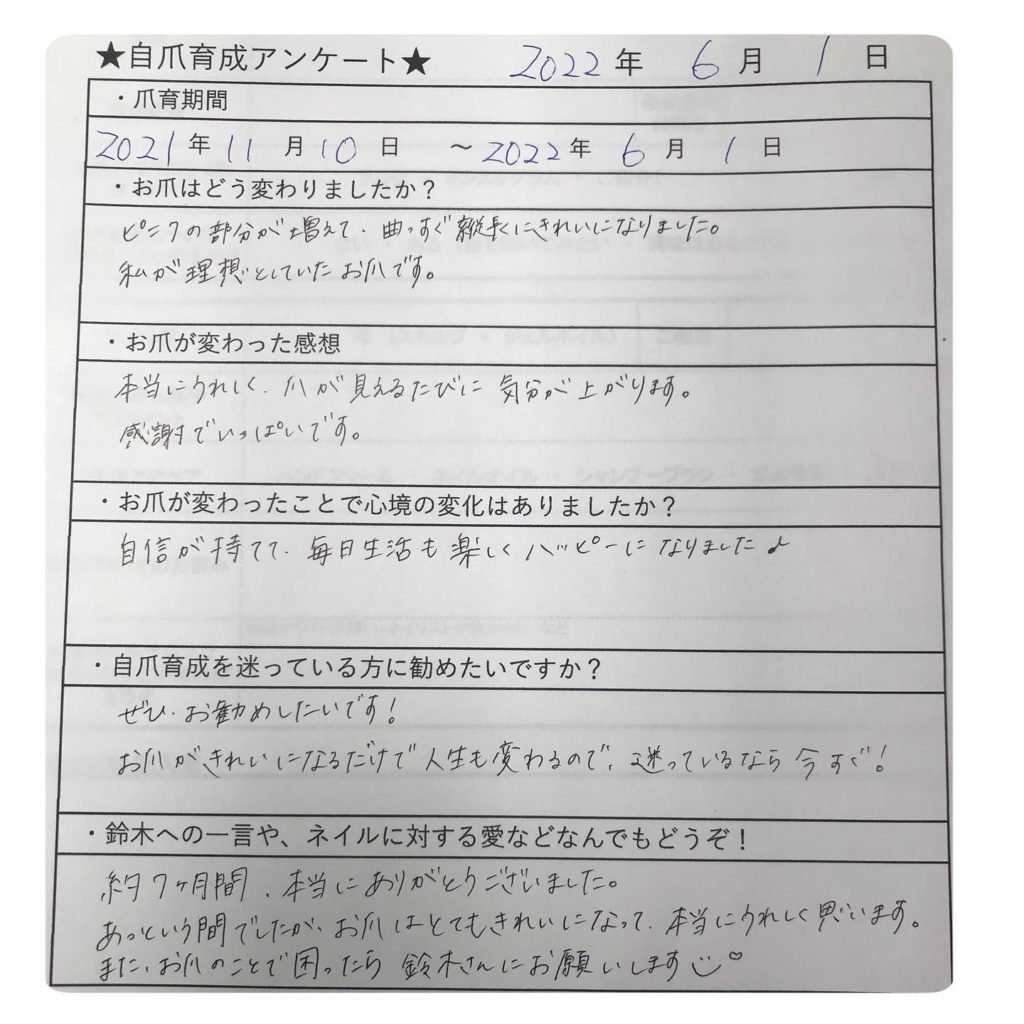 ★自爪育成アンケート★ 2022年 6月 1日
・爪育期間
2021年11月10日 ～2022年 6月 1日
・お爪はどう変わりましたか？
ピンクの部分が増えて、曲っすぐ縦長にきれいになりました。
私が理想としていたお爪です。
・お爪が変わった感想
本当にうれしく、爪が見えるたびに気分が上がります。
感謝でいっぱいです。
・お爪が変わったことで心境の変化はありましたか？
自信が持てて、毎日生活も楽しくハッピーになりました♪
・自爪育成を迷っている方に勧めたいですか？
ぜひ、お勧めしたいです！
お爪がきれいになるだけで人生も変わるので、迷っているなら今すぐ！
・鈴木への一言や、ネイルに対する愛などなんでもどうぞ！
約7ヶ月間、本当にありがとうございました。
あっという間でしたが、お爪はとてもきれいになって、本当にうれしく思います。
また、お爪のことで困ったら鈴木さんにお願いします